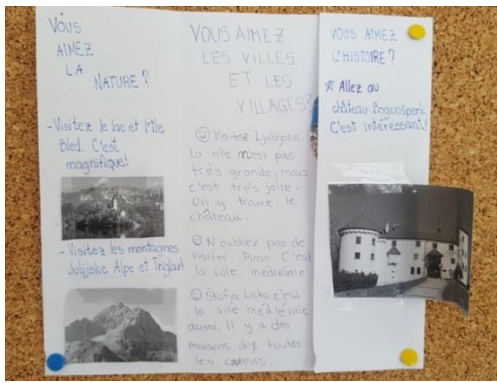 VOUS
AIMEZ
LA
NATURE?
- Visitez le lac et l'île
Bled. C'est
magnifique!
- Visitez les montagnes
Julijske Alpe et Triglav!
VOUS AIMEZ
LES VILLES
ET LES
VILLAGES?
☺ Visitez Ljubljana.
La ville n'est pas
très grande, mais
c'est très jolie.
On y trouve le
château.
☺ N'oubliez pas de
visiter Piran. C'est
la ville médiévale.
☺ Škofja Loka c'est
la ville médiévale
aussi. Il y a des
maisons de toutes
les couleurs.
VOUS AIMEZ
L'HISTOIRE?
Allez au
château Bogenšperk.
C'est intéressant!